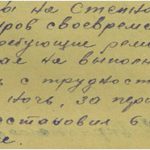 ы на Степн
ров своевремен
ебующие рем
ая на выпол
ь с трудност
ночь, за пер
сстановил 6
е.